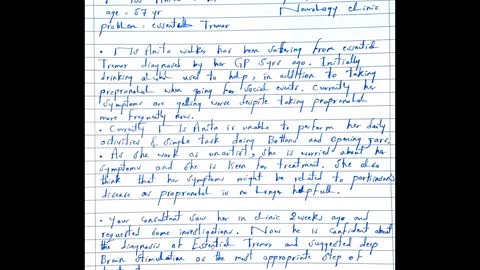 age = 67 yr Neurology clinic
problem = essential Tremor
Anita walker has been suffering from essential
Tremor diagnosed by her GP 5yrs ago. Initially
drinking alcohol used to help, in addition to taking
propranolol when going for social events. Currently her
symptoms are getting worse despite taking propranolol
more frequently now.
Anita is unable to perform her daily
activities & simple task doing Bottons and opening jars.
• As she work as an artist, she is worried about her
symptoms and she is Keen for treatment. She also
think that her symptoms might be related to parkinson's
disease as propranolol is no longer helpfull.
• Your consultant saw her in clinic 2 weeks ago and
requested some investigations. Now he is confident about
the diagnosis of Essential Tremor and suggested deep
Brain stimulation as the most appropriate step of